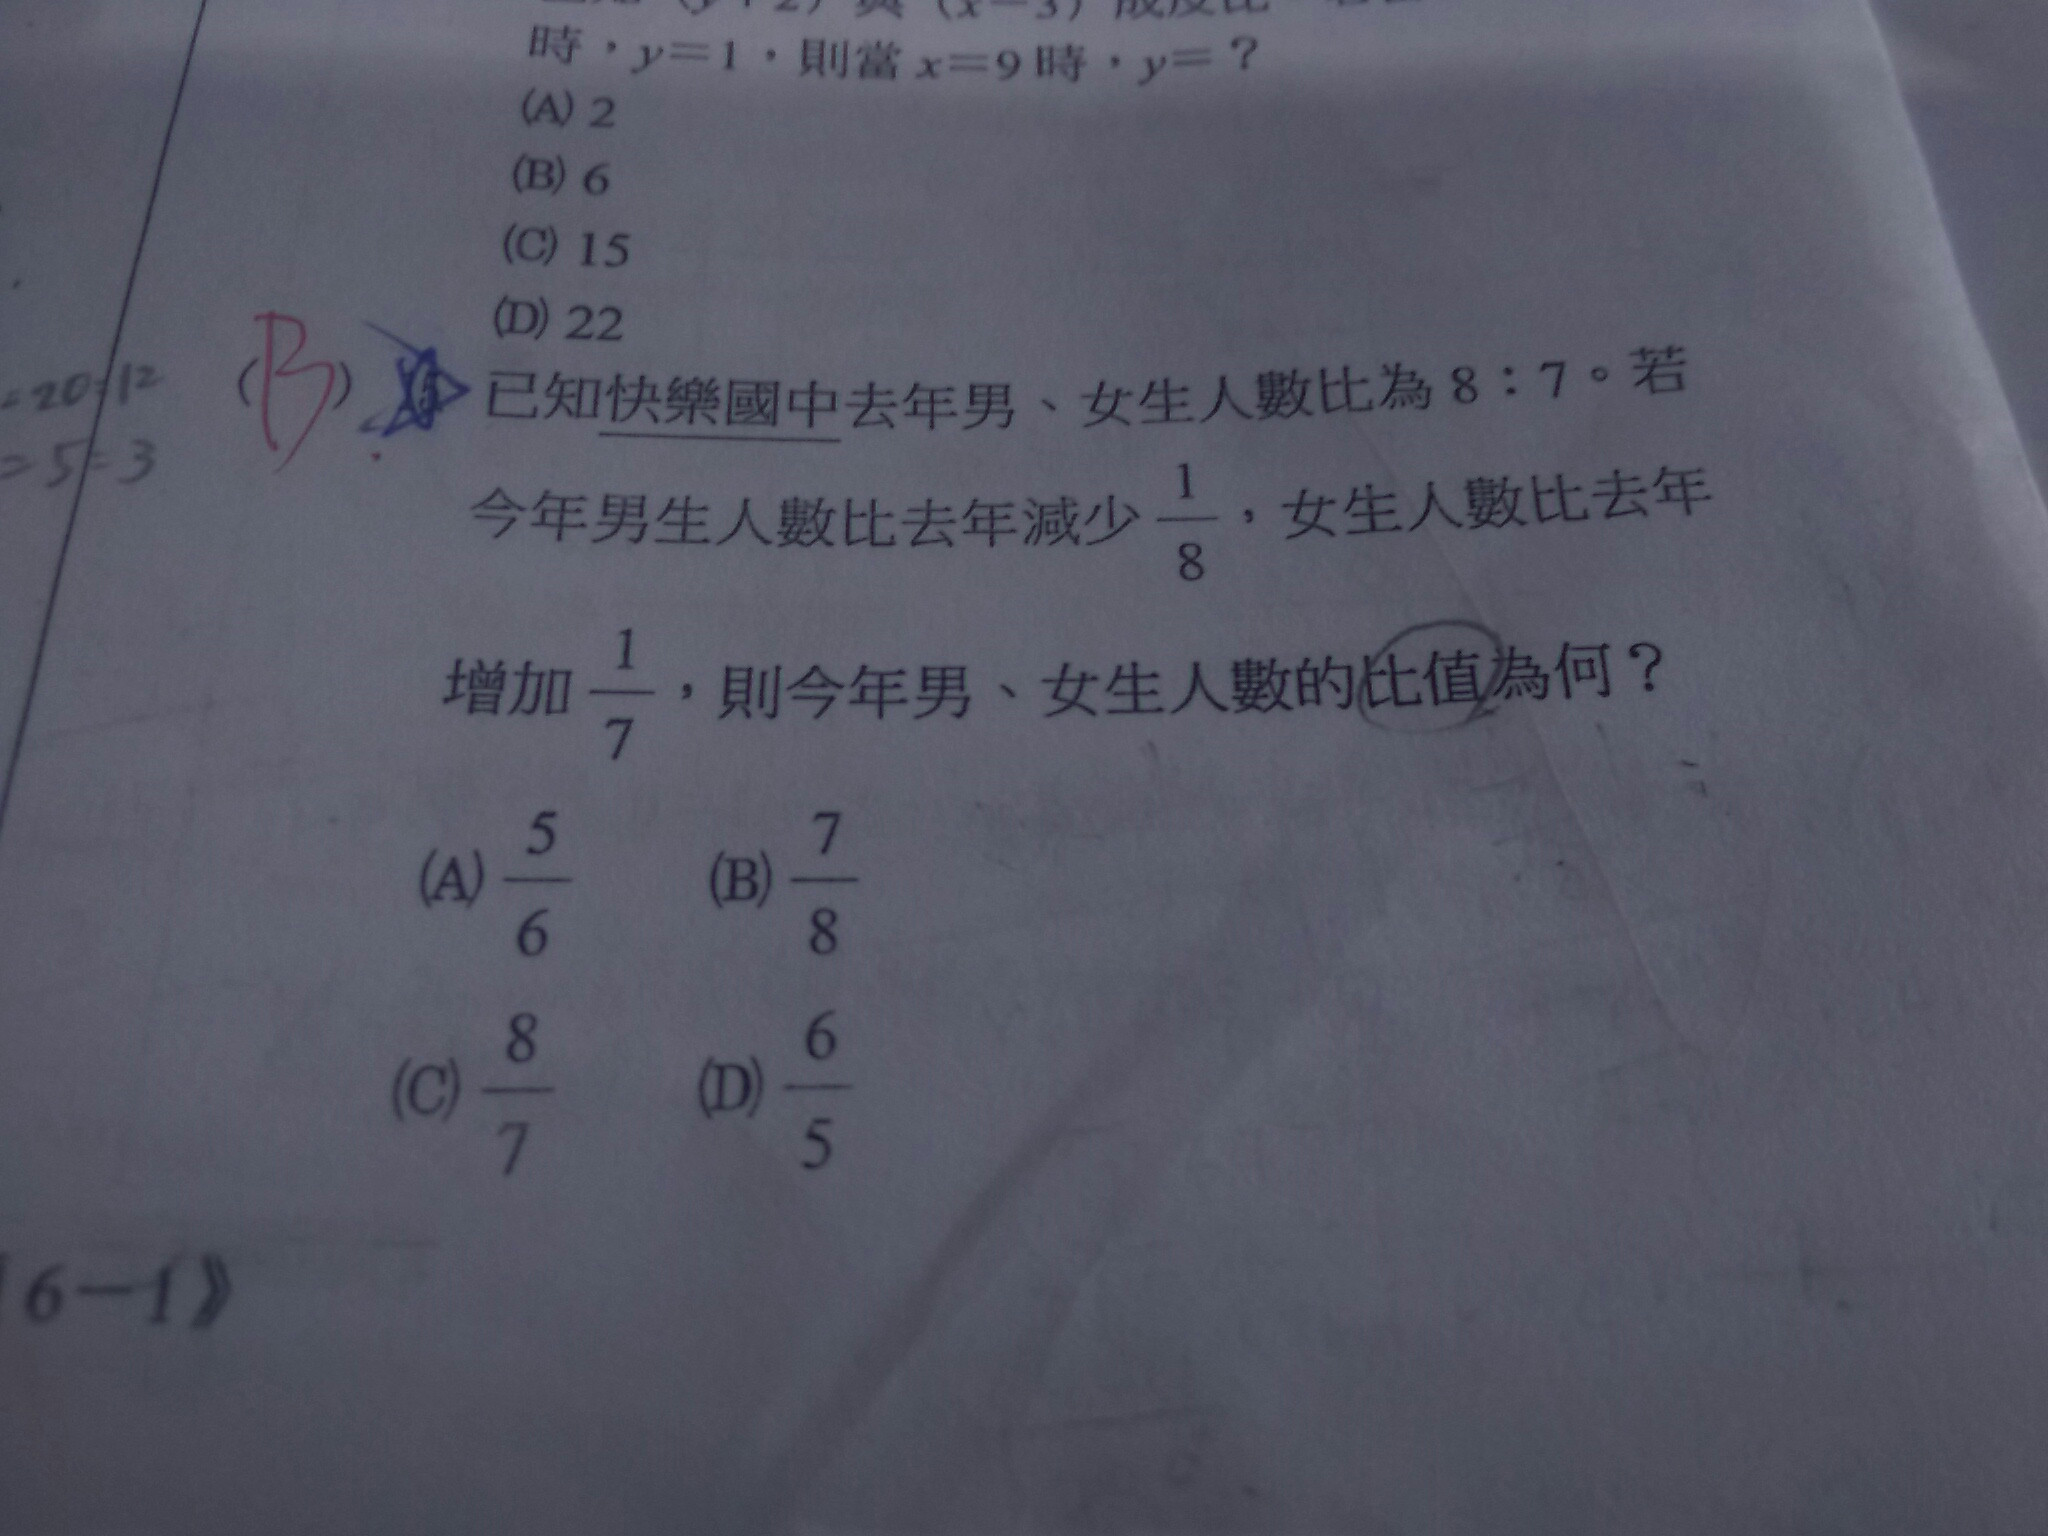 時，y＝1，則當 x＝9 時，y＝？
(A) 2
(B) 6
(C) 15
(D) 22
=20:12
=5:3
(B) 已知快樂國中去年男、女生人數比為 8：7。若
今年男生人數比去年減少 1/8，女生人數比去年
增加 1/7，則今年男、女生人數的比值為何？
(A) 5/6 (B) 7/8
(C) 8/7 (D) 6/5
6－1》